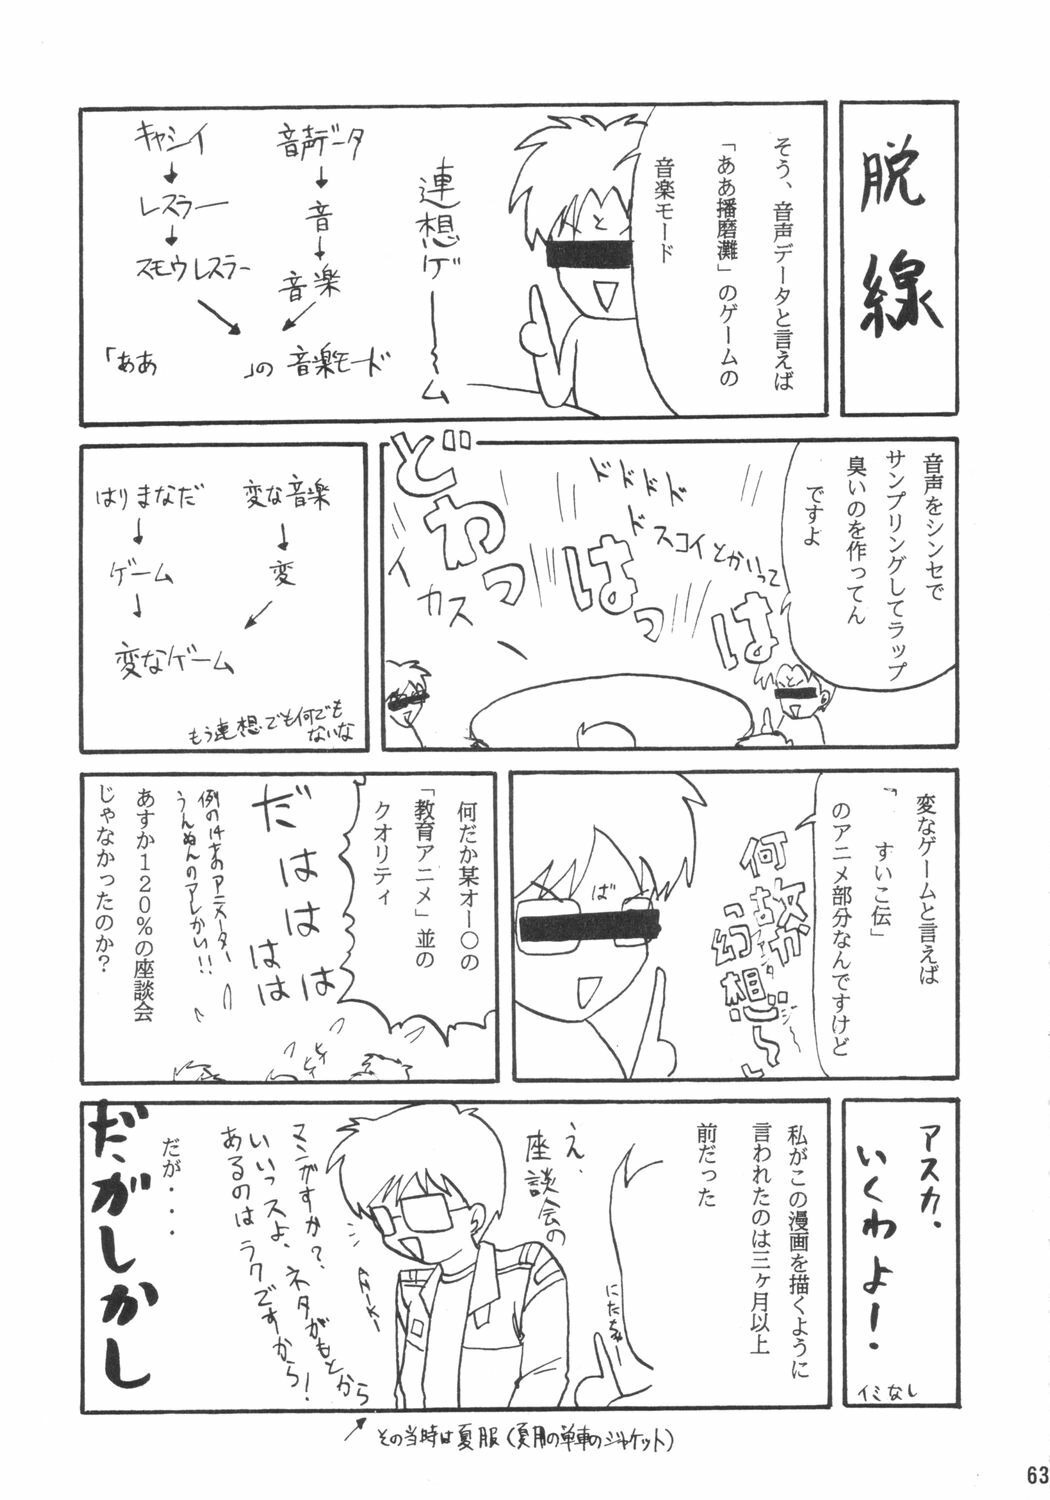 脱線
そう、音声データと言えば
「ああ播磨灘」のゲームの
音楽モード
と
連想ゲ――〜ム
音声データ
↓
音
↓
音楽
キャシイ
↓
レスラー
↓
スモウレスラー
「ああ　　　」の音楽モード
音声をシンセで
サンプリングしてラップ
臭いのを作ってん
ですよ
と
ドドドド
ドスコイとかいって
どわっ
はっはっは
イカス
変な音楽
↓
変
はりまなだ
↓
ゲーム
↓
変なゲーム
もう連想でも何でも
ないな
変なゲームと言えば
「　すいこ伝」
のアニメ部分なんですけど
何故か
幻想
ば
何だか某オー○の
「教育アニメ」並の
クオリティ
だははははは
ヒィ
ヒィ
例の14才のアニメーター
うんぬんのアレかい!!
あすか120%の座談会
じゃなかったのか?
アスカ、
いくわよー!
イミなし
私がこの漫画を描くように
言われたのは三ヶ月以上
前だった
え、
座談会の
マンガすか?
いいっスよ、ネタがもとから
あるのはラクですから!
ANIKI
だが・・・
だがしかし
その当時は夏服(夏用の単車のジャケット)
63